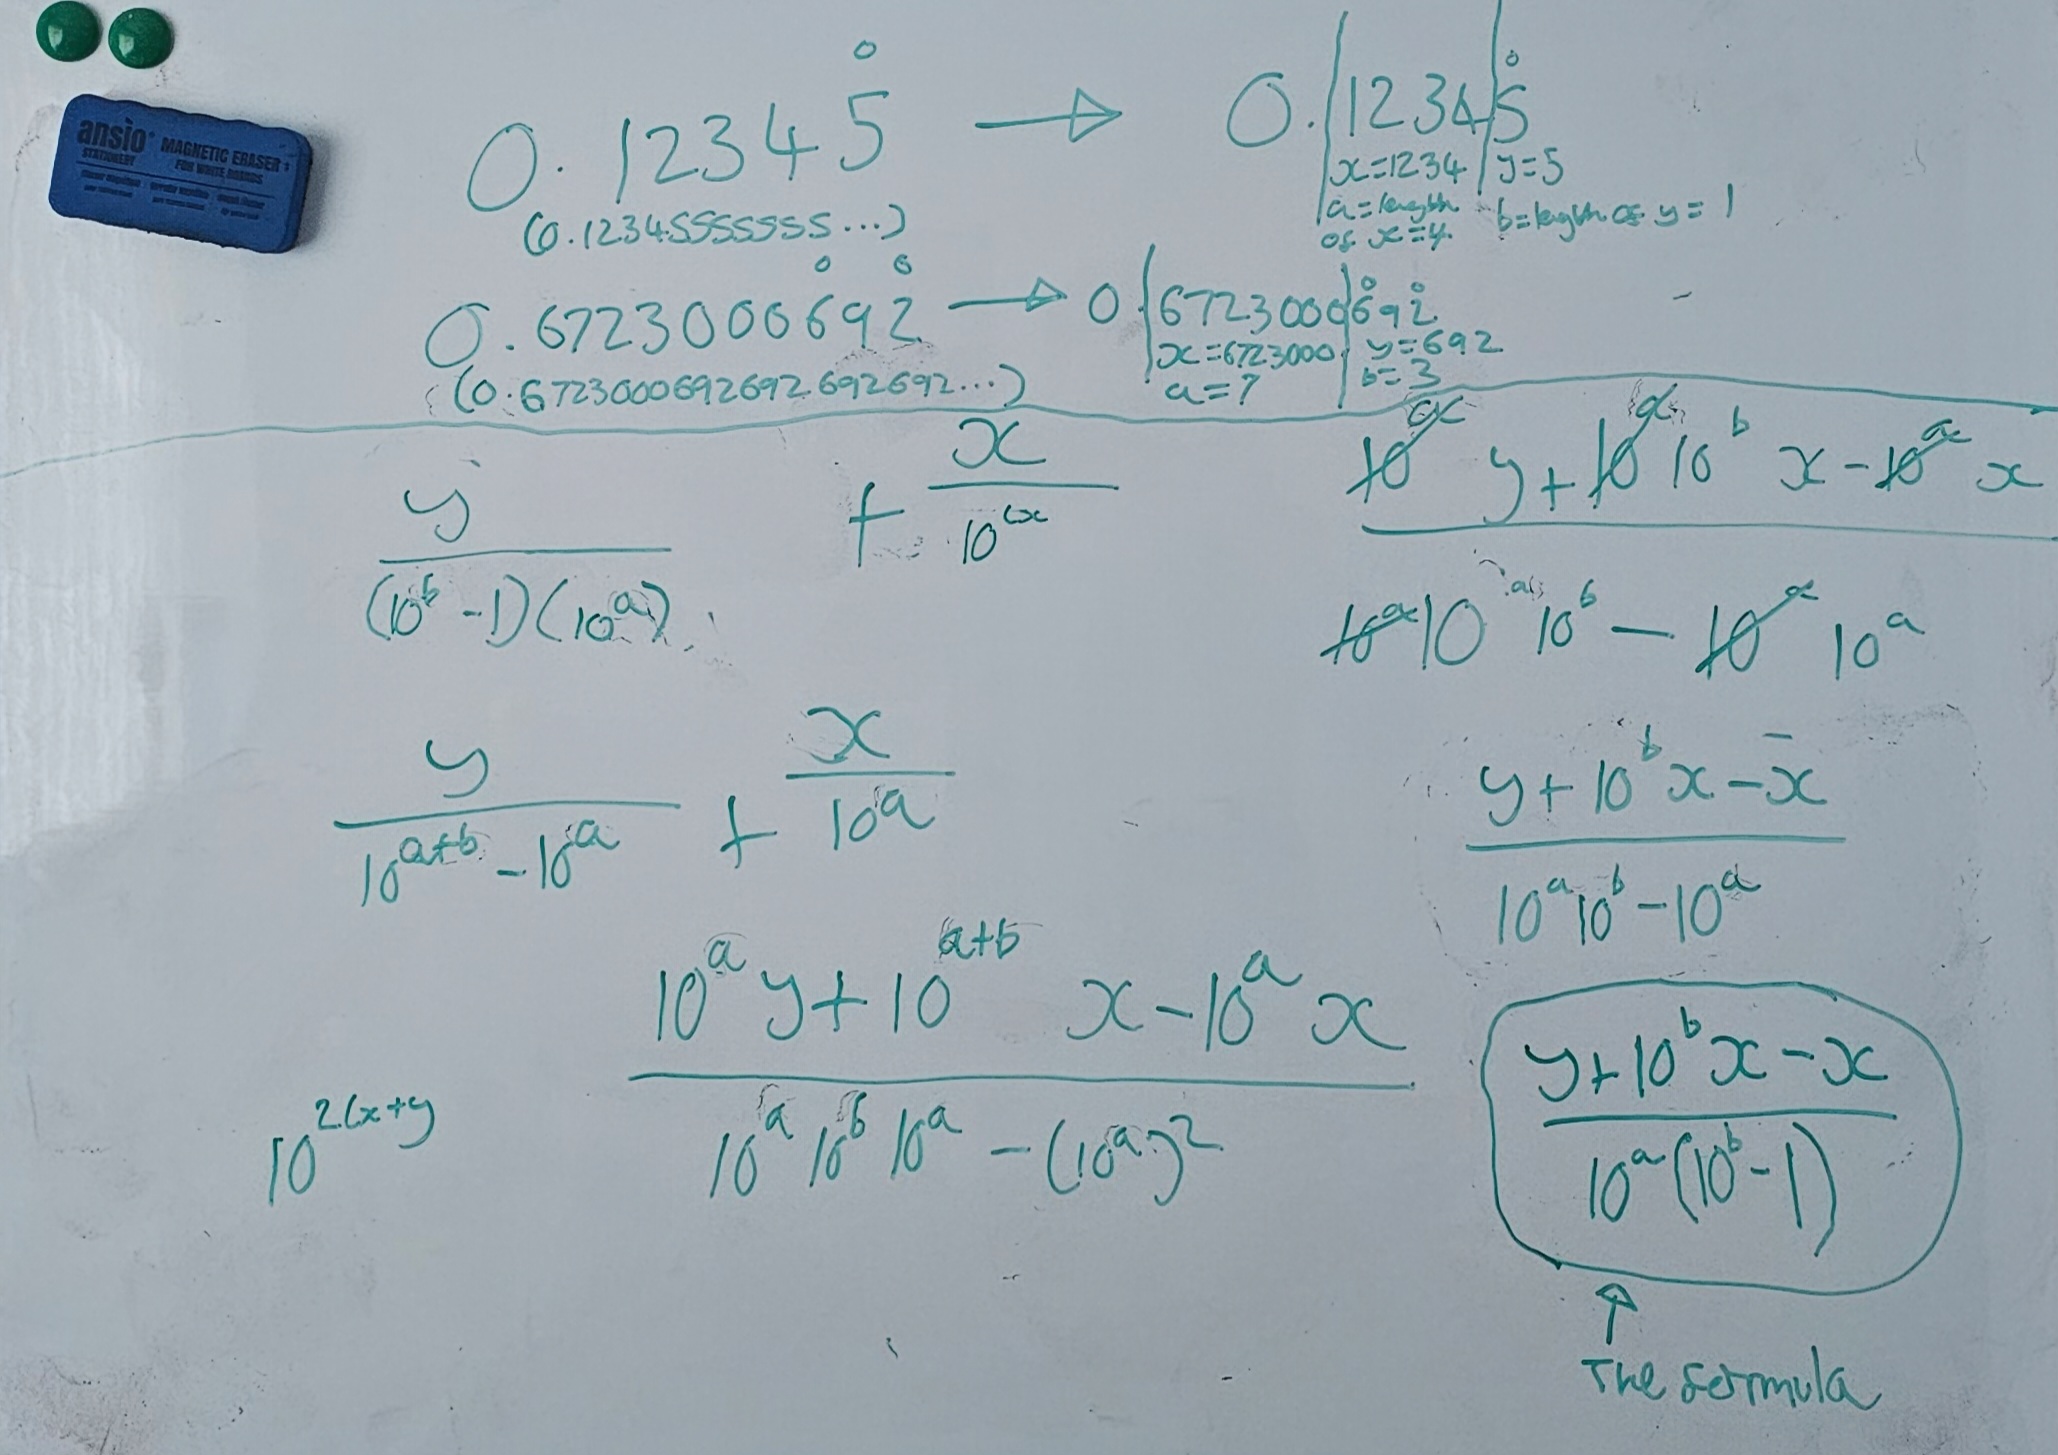 ansio
STATIONERY
MAGNETIC ERASER
FOR WHITE BOARDS
0.12345̊ → 0.|1234|5̊
(0.12345555555...)
x=1234 | y=5
a=length of x=4
b=length of y=1
0.67230006̊92̊ → 0.|6723000|6̊92̊
(0.6723000692692692692...)
x=6723000 | y=692
a=7 | b=3
y/((10^b -1)(10^a)) + x/10^a
y/(10^(a+b) - 10^a) + x/10^a
(10^a y + 10^(a+b) x - 10^a x)/(10^a 10^b 10^a - (10^a)^2)
10^2(x+y
(10^a y + 10^a 10^b x - 10^a x)/(10^a 10^a 10^b - 10^a 10^a)
(y + 10^b x - x)/(10^a 10^b - 10^a)
(y + 10^b x - x)/(10^a (10^b - 1))
The formula